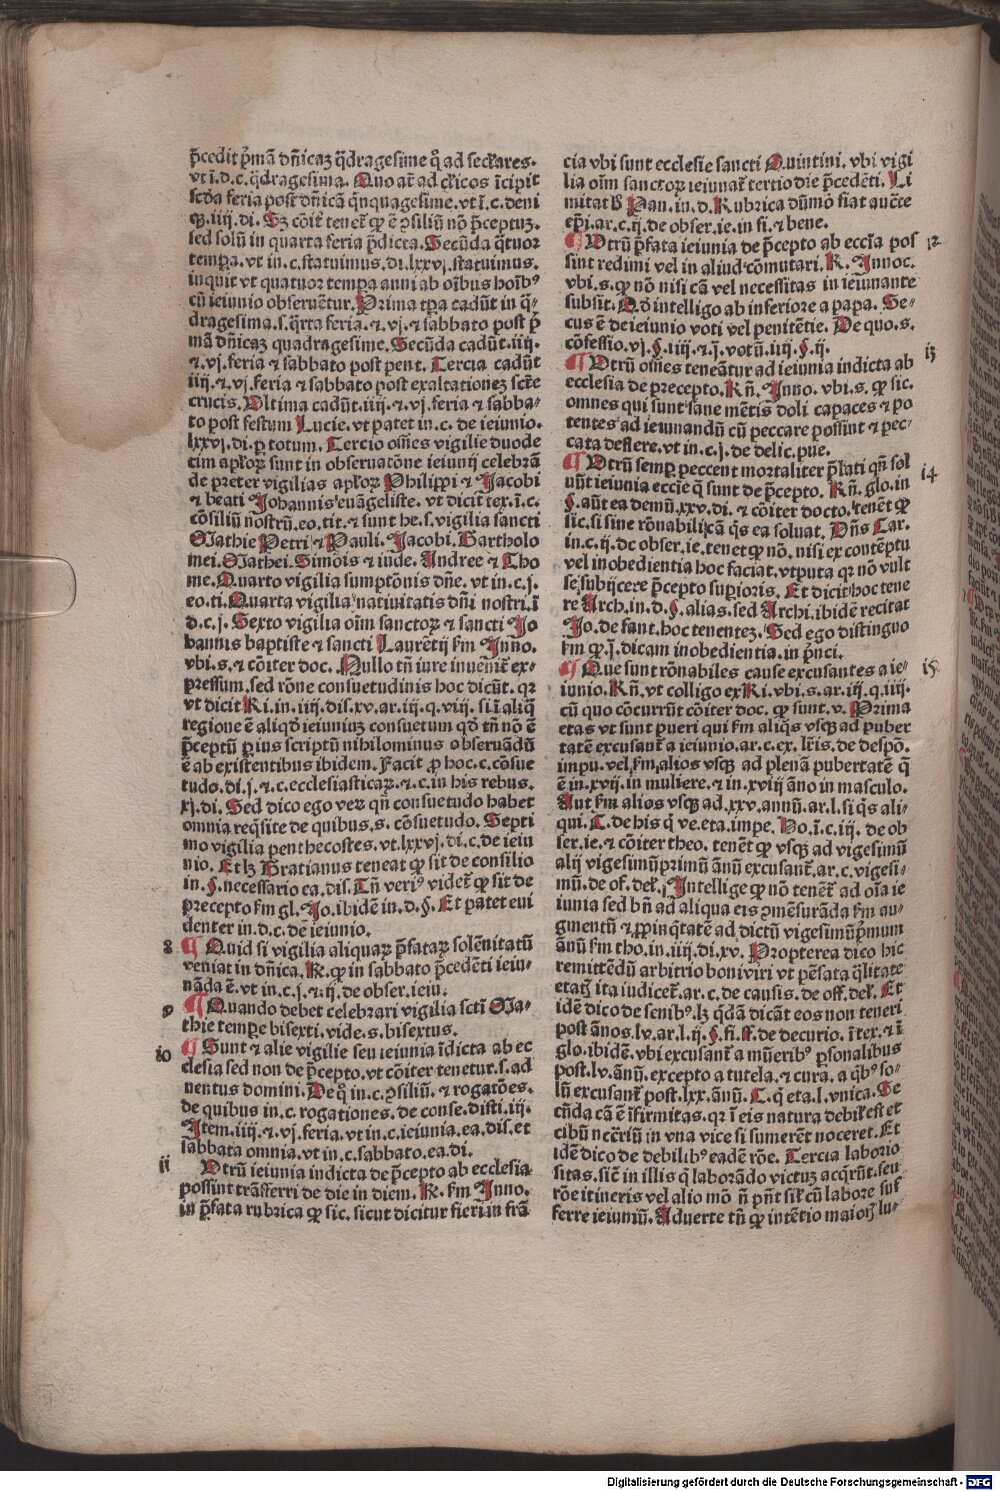 p̄cedit p̄mā dn̄icaꝫ q̄dragesime q̊ ad seclares.
vt ī.d.c.q̄dragesima. Quo at̄ ad cl̄icos īcipit
scda feria post dn̄icā qn̄quagesime.vt ī.c.deni
qꝫ.iiij.di. Sꝫ cōiṫ teneṫ ꝙ ē ꝯsiliū nō p̄ceptuꝫ.
sed solū in quarta feria p̄dicta. Secūda q̄tuor
tempa.vt in.c.statuimus.di.lxxvj.statuimus.
inquit vt quatuor tempa anni ab oībus hoībꝰ
cū ieiunio obseruētur. Prima tp̄a cadūt in q̄-
dragesima.s.q̄rta feria.⁊.vj.⁊ sabbato post p̄
mā dn̄icaꝫ quadragesime. Secūda cadūt.iiij.
⁊.vj.feria ⁊ sabbato post pent. Tercia cadūt
iiij.⁊.vj.feria ⁊ sabbato post exaltationeꝫ scte
crucis. Vltima cadūt.iiij.⁊.vj.feria ⁊ sabba-
to post festum Lucie.vt patet in.c.de ieiunio.
lxxvj.di.ꝑ totum. Tercio om̄es vigilie duode
cim apl̄oꝝ sunt in obseruatōne ieiunij celebrā
de preter vigilias apl̄oꝝ Philippi ⁊ Jacobi
⁊ beati Johannis euāgeliste. vt dicit tex.ī.c.
cōsiliū nostrū.eo.tit.⁊ sunt he.s.vigilia sancti
Mathie Petri ⁊ Pauli. Jacobi. Bartholo
mei. Mathei. Simōis ⁊ iude. Andree ⁊ Tho
me. Quarto vigilia sumptōnis dn̄e. vt in.c.j.
eo.ti. Quarta vigilia natiuitatis dn̄i nostri.ī
d.c.j. Sexto vigilia oīm sanctoꝝ ⁊ sancti Jo
hannis baptiste ⁊ sancti Laurētij s̄m Inno.
vbi.s.⁊ cōiter doc. Nullo tn̄ iure inueniṫ ex-
pressum.sed rōne consuetudinis hoc dicūt.qꝛ
vt dicit Ri.in.iiij.dis.xv.ar.iij.q.viij. si ī aliq̄
regione ē aliqd̄ ieiuniuꝫ consuetum qd̄ tn̄ nō ē
p̄ceptū ꝑ ius scriptū nihilominus obseruādū
ē ab existentibus ibidem. Facit ꝓ hoc.c.cōsue
tudo.di.j.⁊.c.ecclesiasticaꝝ.⁊.c.in his rebus.
xj.di. Sed dico ego veꝝ qn̄ consuetudo habet
omnia req̄site de quibus.s.cōsuetudo. Septi
mo vigilia penthecostes.vt.lxxvj.di.c.de ieiu
nio. Et lꝫ Gratianus teneat ꝙ sit de consilio
in.§.necessario ea.dis. Tn̄ veriꝰ videṫ ꝙ sit de
precepto s̄m gl. Jo.ibidē in.d.§. Et patet eui
denter in.d.c.de ieiunio.
8 ¶ Quid si vigilia aliquaꝝ p̄fataꝝ solēnitatū
veniat in dn̄ica. R. ꝙ in sabbato p̄cedēti ieiu-
nāda ē.vt in.c.j.⁊.ij.de obser.ieiu.
9 ¶ Quando debet celebrari vigilia scti Ma-
thie tempe bisexti. vide.s.bisextus.
io ¶ Sunt ⁊ alie vigilie seu ieiunia īdicta ab ec
clesia sed non de p̄cepto.vt cōiter tenetur.s.ad
uentus domini. De q̊ in.c.ꝯsiliū.⁊ rogatōes.
de quibus in.c.rogationes.de conse.disti.iij.
Item.iiij.⁊.vj.feria.vt in.c.ieiunia.ea.dis.et
sabbata omnia.vt in.c.sabbato.ea.di.
ii Vtrū ieiunia indicta de p̄cepto ab ecclesia
possint trāsferri de die in diem. R. s̄m Inno.
in p̄fata rubrica ꝙ sic.sicut dicitur fieri in frā
cia vbi sunt ecclesie sancti Quintini. vbi vigi
lia oīm sanctoꝝ ieiunaṫ tertio die p̄cedēti. Li
mitat ħ Pan.in.d. Rubrica dūmō fiat aucte
ep̄i.ar.c.ij.de obser.ie.in fi.⁊ bene.
¶ Vtrū p̄fata ieiunia de p̄cepto ab eccīa pos 12
sint redimi vel in aliud cōmutari. R. Innoc.
vbi.s.ꝙ nō nisi cā vel necessitas in ieiunante
subsit. Qd̄ intelligo ab inferiore a papa. Se-
cus ē de ieiunio voti vel penitētie. De quo.s.
cōfessio.vj.§.iiij.⁊.j.votū.iiij.§.ij. i3
¶ Vtrū om̄es teneātur ad ieiunia indicta ab
ecclesia de precepto. Rn̄. Inno. vbi.s.ꝙ sic.
omnes qui sunt sane mētis doli capaces ⁊ po
tentes ad ieiunandū cū peccare possint ⁊ pec-
cata deflere.vt in.c.j.de delic.pue.
¶ Vtrū semꝑ peccent mortaliter p̄lati qn̄ sol i4
uūt ieiunia eccīe q̄ sunt de p̄cepto. Rn̄. glo.in
§.aūt ea demū.xxv.di.⁊ cōiter docto.tenēt ꝙ
sic.si sine rōnabili cā q̄s ea soluat. Dn̄s Car.
in.c.ij.de obser.ie.tenet ꝙ nō.nisi ex contēptu
vel inobedientia hoc faciat.vtputa qꝛ nō vult
se subijcere p̄cepto supioris. Et dicit hoc tene
re Arch.in.d.§.alias.sed Archi.ibidē recitat
Jo.de fant.hoc tenenteꝫ. Sed ego distinguo
s̄m ꝙ.j.dicam inobedientia.in p̄nci.
¶ Que sunt rōnabiles cause excusantes a ie- i5
iunio. Rn̄. vt colligo ex Ri.vbi.s.ar.iij.q.iiij.
cū quo cōcurrūt cōiter doc.ꝙ sunt.v. Prima
etas vt sunt pueri qui s̄m aliq̄s vsqꝫ ad puber
tatē excusanṫ a ieiunio.ar.c.ex.lr̄is.de despō.
impu.vel s̄m alios vsqꝫ ad plenā pubertatē q̄
ē in.xvij.in muliere.⁊ in.xviij āno in masculo.
Aut s̄m alios vsqꝫ ad.xxv.annū.ar.l.si q̄s ali-
qui. C.de his q̄ ve.eta.impe. Ho.ī.c.iij.de ob
ser.ie.⁊ cōiter theo. tenēt ꝙ vsqꝫ ad vigesimū
alij vigesimūprimū ānū excusanṫ.ar.c.vigesi-
mū.de of.del. Intellige ꝙ nō tenēṫ ad oīa ie
iunia sed bn̄ ad aliqua eis ꝯmēsurāda s̄m au-
gmentū ⁊ ꝓpinq̄tatē ad dictū vigesimūp̄mum
ānū s̄m tho.in.iiij.di.xv. Propterea dico hic
remittēdū arbitrio boni viri vt pēsata q̄litate
etatꝭ ita iudiceṫ.ar.c.de causis.de off.del. Et
idē dico de senibꝰ.lꝫ q̄dā dicāt eos non teneri
post ānos.lv.ar.l.ij.§.fi.ff.de decurio.ī tex.⁊ ī
glo.ibidē.vbi excusanṫ a mūeribꝰ ꝑsonalibus
post.lv.ānū.excepto a tutela.⁊ cura.a q̄bꝰ so-
lū excusanṫ post.lxx.ānū. C.q̄ eta.l.vnica. Se
cūda cā ē īfirmitas.qꝛ ī eis natura debil̄ est et
cibū necc̄riū in vna vice si sumerēt noceret. Et
idē dico de debilibꝰ eadē rōe. Tercia laborio
sitas.sic̄ in illis q̄ laborādo victuꝫ acq̄rūt.seu
rōe itineris vel alio mō n̄ pn̄t sil̄ cū labore suf
ferre ieiuniū. Aduerte tn̄ ꝙ intētio maioꝝ lu-
Digitalisierung gefördert durch die Deutsche Forschungsgemeinschaft - DFG